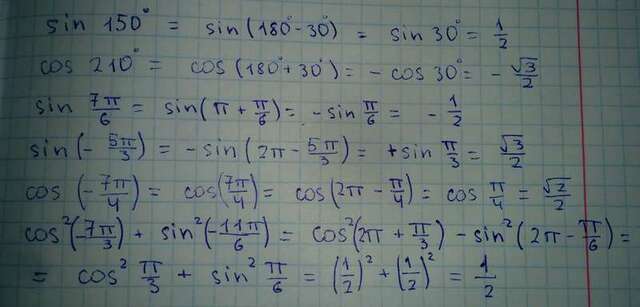 sin 150° = sin(180°-30°) = sin 30° = 1/2
cos 210° = cos(180°+30°) = - cos 30° = - √3/2
sin 7π/6 = sin(π + π/6) = - sin π/6 = - 1/2
sin(- 5π/3) = - sin(2π - 5π/3) = + sin π/3 = √3/2
cos (- 7π/4) = cos(7π/4) = cos(2π - π/4) = cos π/4 = √2/2
cos²(-7π/3) + sin²(-11π/6) = cos²(2π + π/3) - sin²(2π - π/6) =
= cos² π/3 + sin² π/6 = (1/2)² + (1/2)² = 1/2